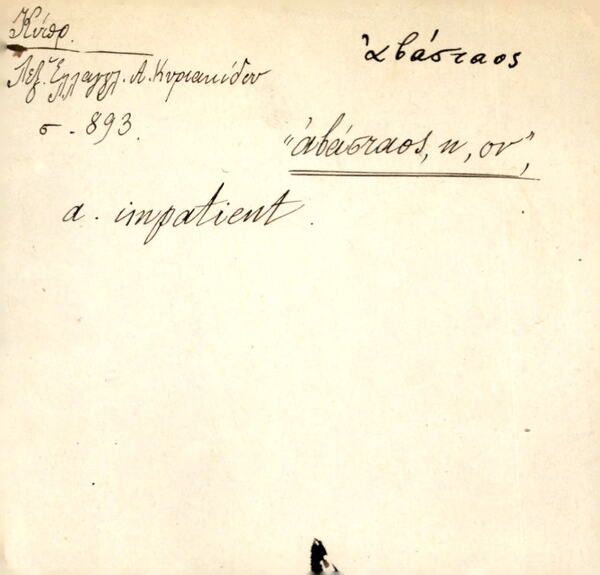 Κύπρ.
ἀβάσταος
Λεξ. Ἑλλαγγλ. Α. Κυριακίδου
σ. 893.
"ἀβάσταος, η, ον",
a. impatient.